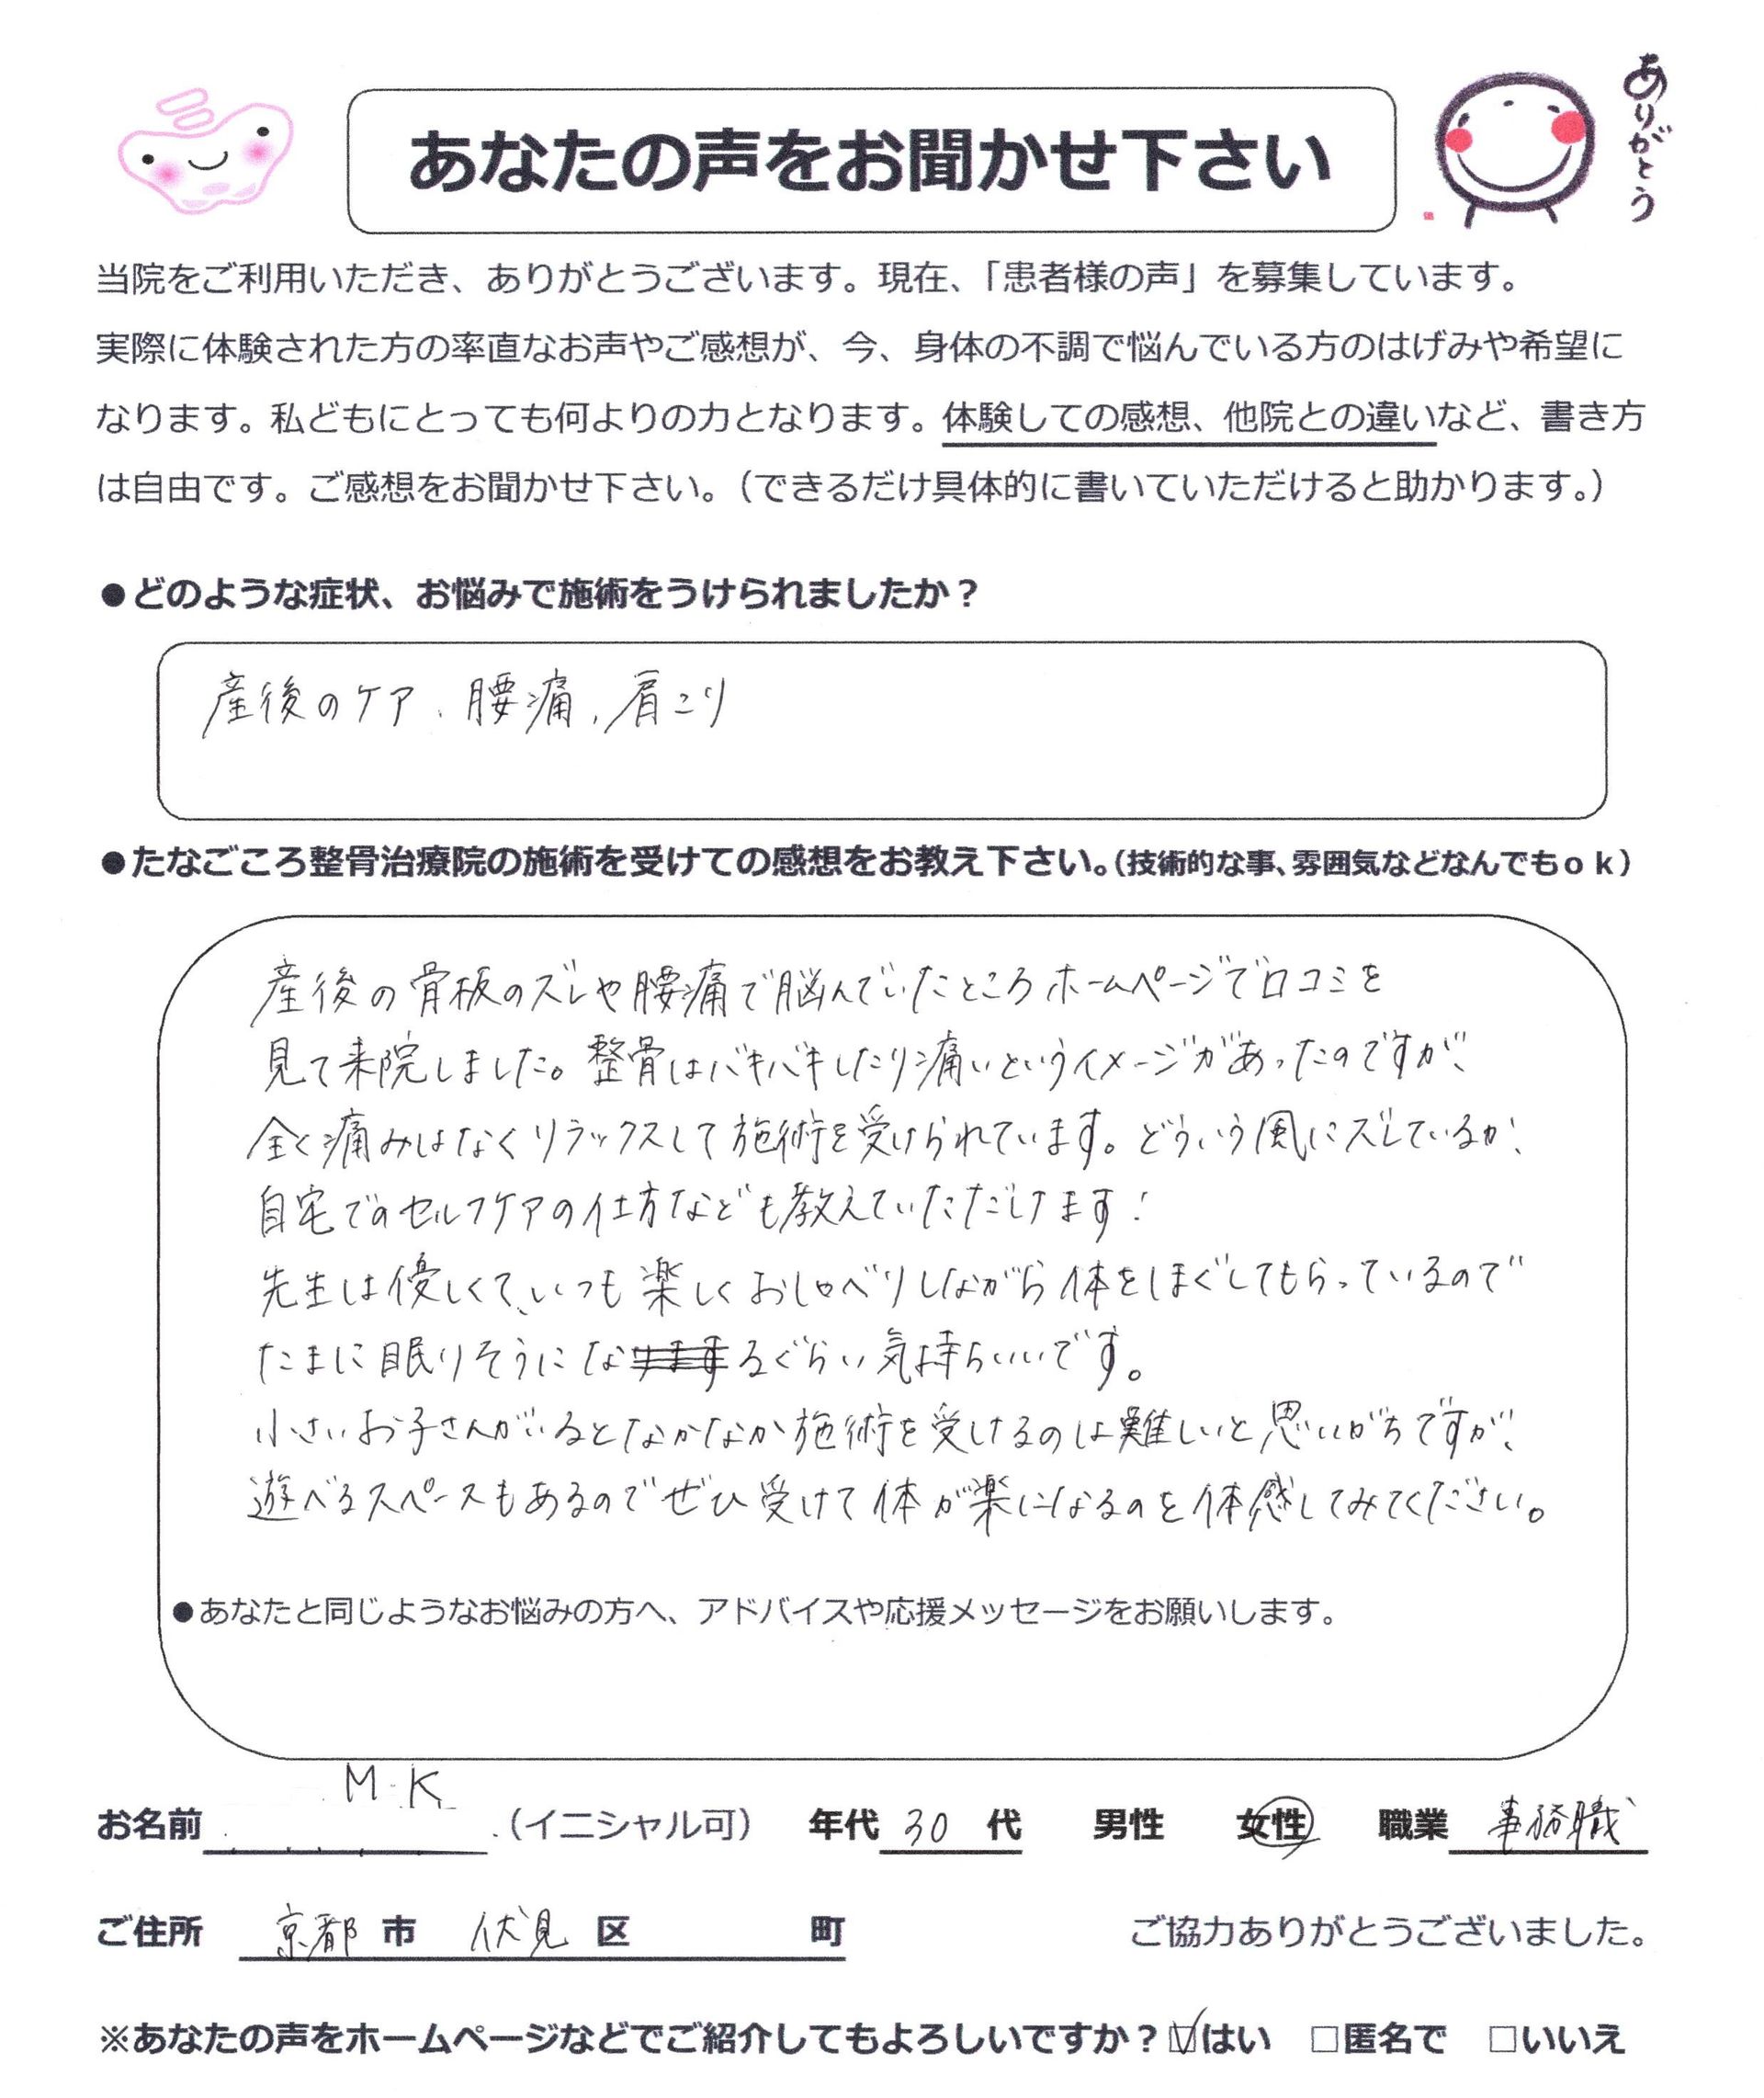 あなたの声をお聞かせ下さい
ありがとう
当院をご利用いただき、ありがとうございます。現在、「患者様の声」を募集しています。
実際に体験された方の率直なお声やご感想が、今、身体の不調で悩んでいる方のはげみや希望に
なります。私どもにとっても何よりの力となります。体験しての感想、他院との違いなど、書き方
は自由です。ご感想をお聞かせ下さい。（できるだけ具体的に書いていただけると助かります。）
●どのような症状、お悩みで施術をうけられましたか？
産後のケア、腰痛、肩こり
●たなごころ整骨治療院の施術を受けての感想をお教え下さい。（技術的な事、雰囲気などなんでもｏｋ）
産後の骨板のズレや腰痛で脳んでいたところホームページで口コミを
見て来院しました。整骨はバキバキしたり痛いというイメージがあったのですが、
全く痛みはなくリラックスして施術を受けられています。どういう風にズレているか、
自宅でのセルフケアの仕方なども教えていただけます！
先生は優しくて、いつも楽しくおしゃべりしながら体をほぐしてもらっているので
たまに眠りそうになるぐらい気持ちいいです。
小さいお子さんがいるとなかなか施術を受けるのは難しいと思いがちですが、
遊べるスペースもあるのでぜひ受けて体が楽になるのを体感してみてください。
●あなたと同じようなお悩みの方へ、アドバイスや応援メッセージをお願いします。
M.K
お名前 （イニシャル可） 年代 30 代 男性 女性 職業 事務職
ご住所 京都 市 伏見 区 町 ご協力ありがとうございました。
※あなたの声をホームページなどでご紹介してもよろしいですか？☑はい □匿名で □いいえ